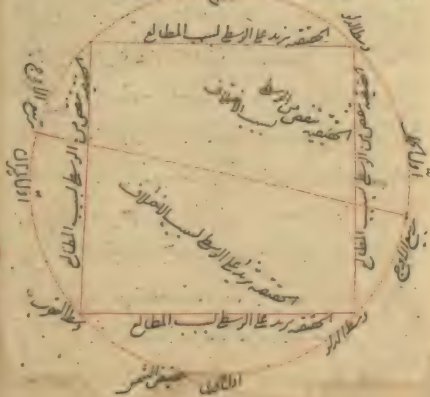 الحقيقية يزيد على الوسطى لسبب المطالع
الحقيقية ينقص من الوسطى
لسبب الاختلاف
الحقيقية ينقص من الوسطى لسبب المطالع
الحقيقية ينقص من الوسطى لسبب المطالع
الحقيقية يزيد على الوسطى لسبب الاختلاف
الحقيقية يزيد على الوسطى لسبب المطالع
وسط الدلو
وسط العقرب
اول الميزان
اول الحمل
حضيض الشمس